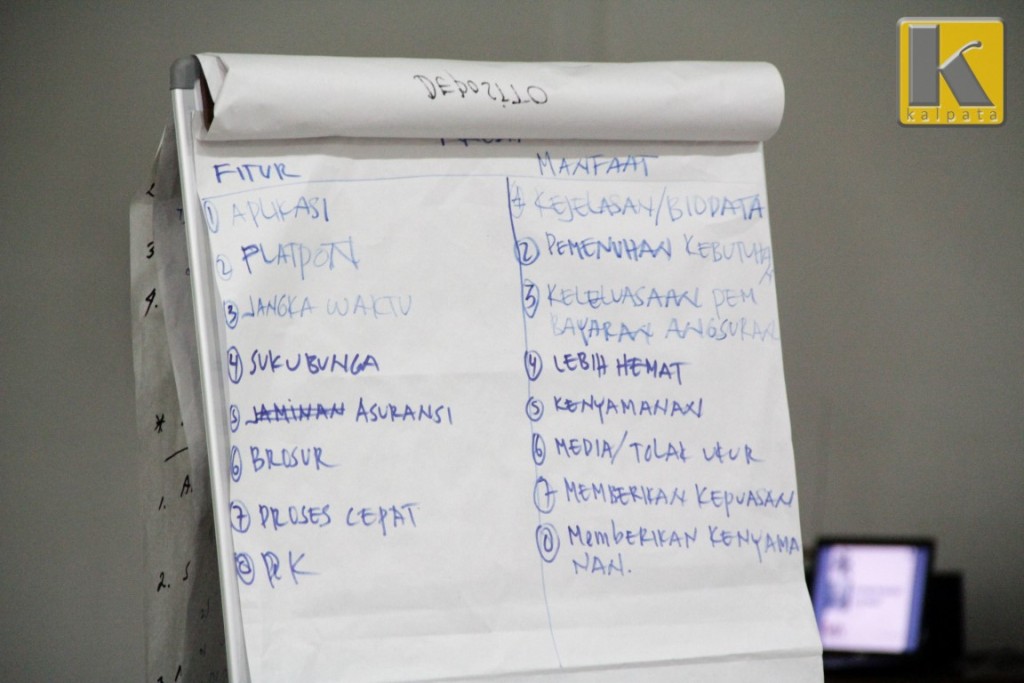 Deposito
FITUR MANFAAT
① APLIKASI 1 KEJELASAN/BIODATA
② PLATPON ② PEMENUHAN KEBUTUHAN
③ JANGKA WAKTU ③ KELELUASAAN PEM
BAYARAN ANGSURAN
④ SUKUBUNGA ④ LEBIH HEMAT
⑤ JAMINAN ASURANSI ⑤ KENYAMANAN
⑥ BROSUR ⑥ MEDIA/TOLAK UKUR
⑦ PROSES CEPAT ⑦ MEMBERIKAN KEPUASAN
⑧ ⑧ MemBERIKAN KENYAMA
NAN.
K
kalpata
3
4.
*
1. A.
2. S